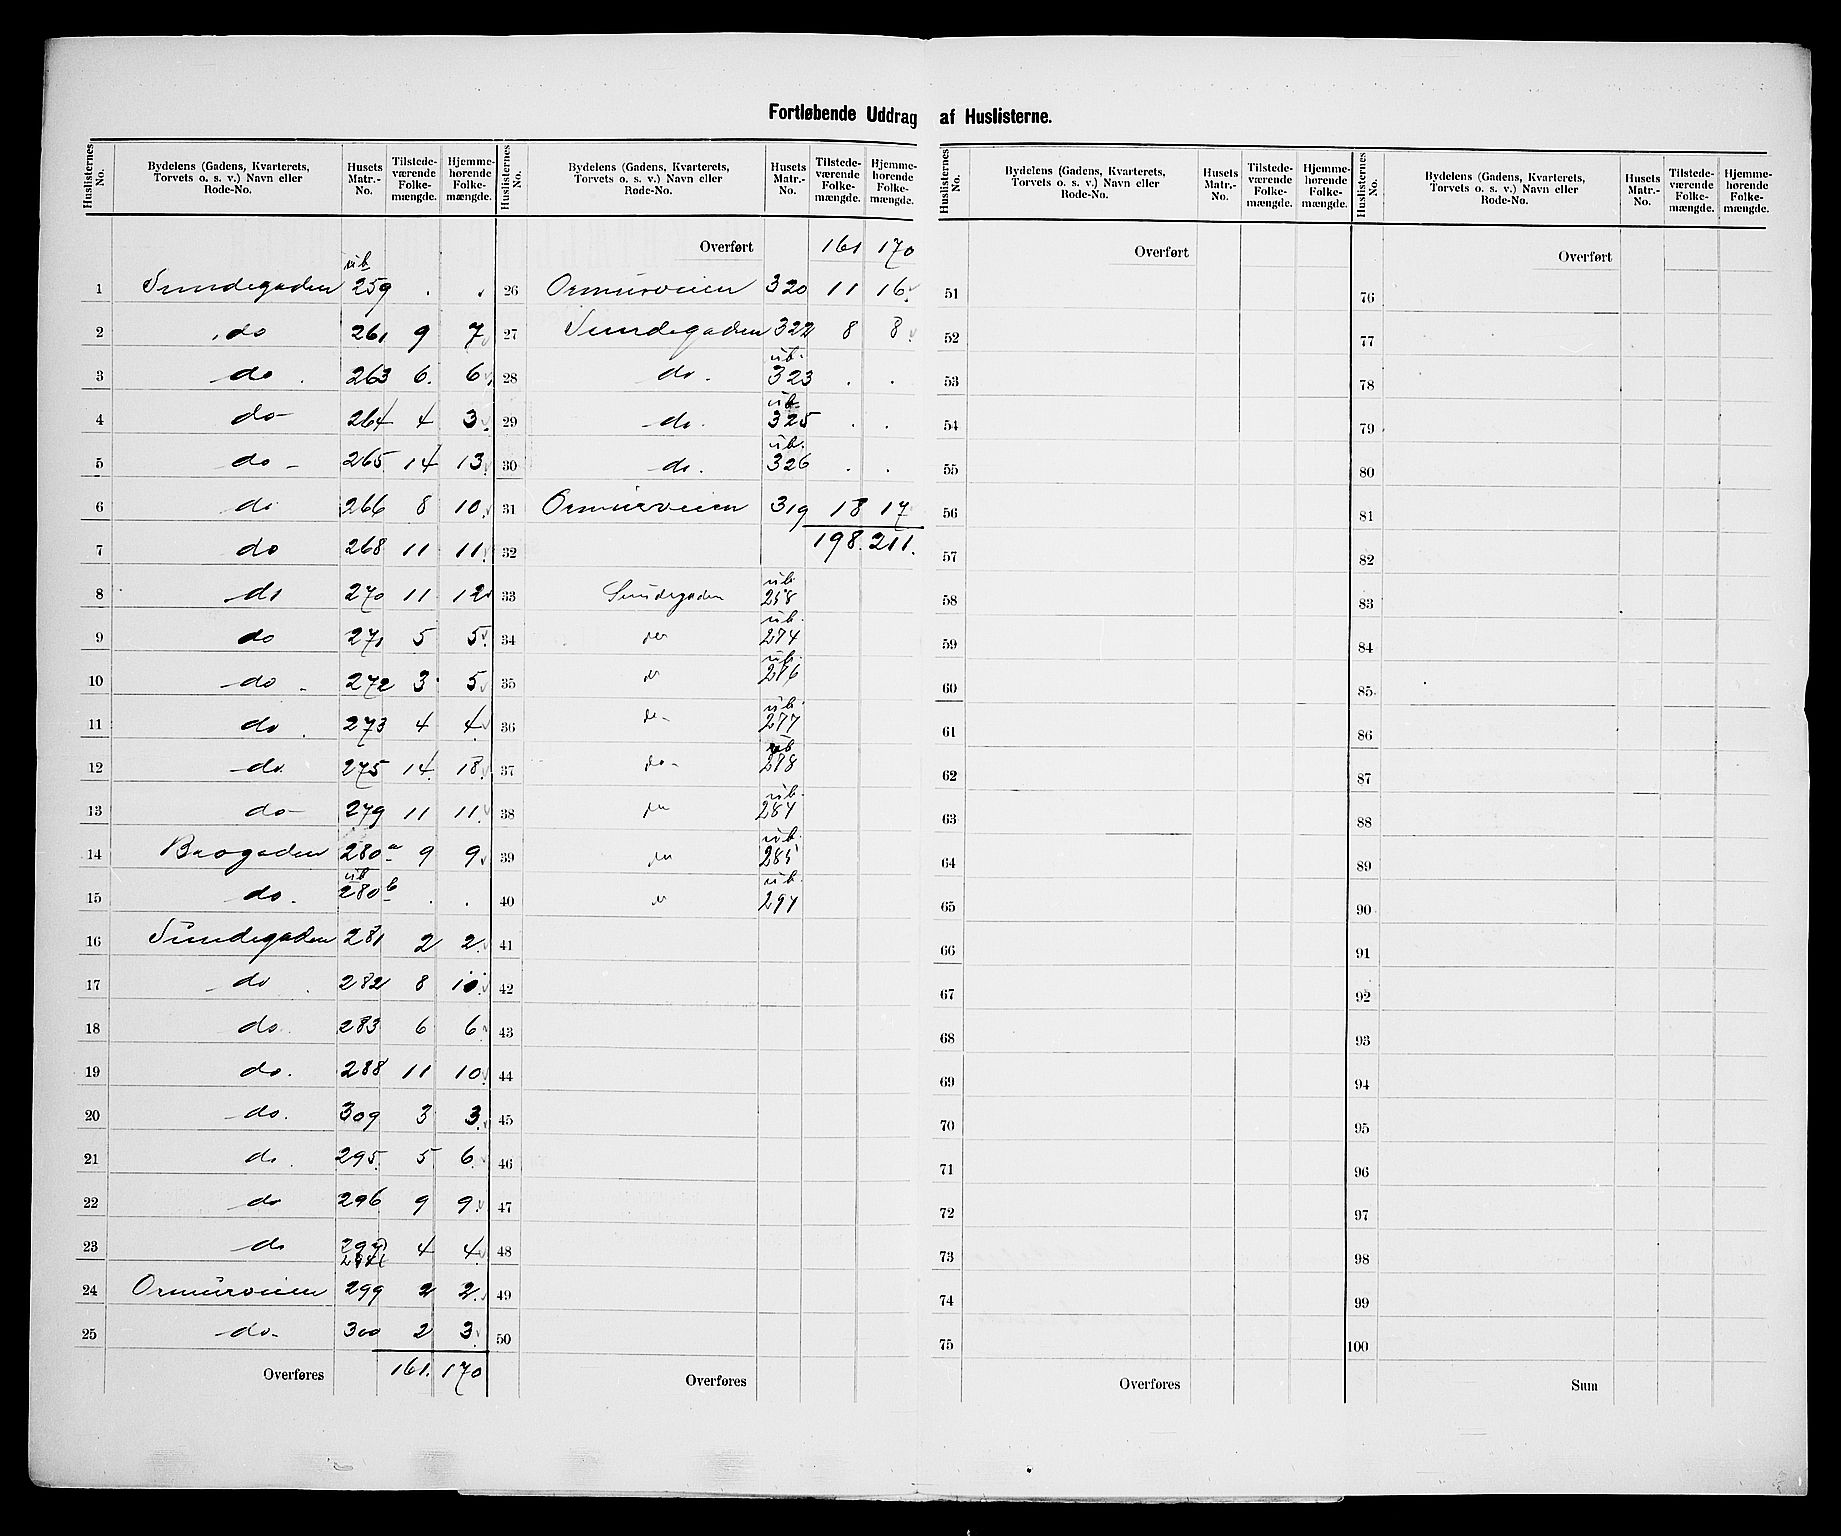 Fortløbende Uddrag af Huslisterne.
Huslisternes No. | Bydelens (Gadens, Kvarterets, Torvets o. s. v.) Navn eller Rode-No. | Husets Matr.-No. | Tilstedeværende Folkemængde. | Hjemmehørende Folkemængde.
1 Sundegaden ub 259 . .
2 do 261 9 7
3 do 263 6 6
4 do 264 4 3
5 do 265 14 13
6 do 266 8 10
7 do 268 11 11
8 do 270 11 12
9 do 271 5 5
10 do 272 3 5
11 do 273 4 4
12 do 275 14 18
13 do 279 11 11
14 280a 9 9
15 do. ub 280b . .
16 Sundegaden 281 2 2
17 do 282 8 10
18 do 283 6 6
19 do. 288 11 10
20 do. 309 3 3
21 do. 295 5 6
22 do 296 9 9
23 do 4 4
24 Ormurveien 299 2 2
25 do 300 2 3
Overføres 161. 170
Huslisternes No. | Bydelens (Gadens, Kvarterets, Torvets o. s. v.) Navn eller Rode-No. | Husets Matr.-No. | Tilstedeværende Folkemængde. | Hjemmehørende Folkemængde.
Overført 161 170
26 Ormurveien 320 11 16
27 Sundegaden 322 8 8
28 do. ub. 323 . .
29 do. ub 325 . .
30 do. ub. 326 . .
31 Ormurveien 319 18 17
32 198. 211.
33 Sundegaden ub. 258
34 do ub. 274
35 do ub. 276
36 do ub. 277
37 do ub 278
38 do ub. 284
39 do ub. 285
40 do ub.
41
42
43
44
45
46
47
48
49
50
Overføres
Huslisternes No. | Bydelens (Gadens, Kvarterets, Torvets o. s. v.) Navn eller Rode-No. | Husets Matr.-No. | Tilstedeværende Folkemængde. | Hjemmehørende Folkemængde.
Overført
51
52
53
54
55
56
57
58
59
60
61
62
63
64
65
66
67
68
69
70
71
72
73
74
75
Overføres
Huslisternes No. | Bydelens (Gadens, Kvarterets, Torvets o. s. v.) Navn eller Rode-No. | Husets Matr.-No. | Tilstedeværende Folkemængde. | Hjemmehørende Folkemængde.
Overført
76
77
78
79
80
81
82
83
84
85
86
87
88
89
90
91
92
93
94
95
96
97
98
99
100
Sum